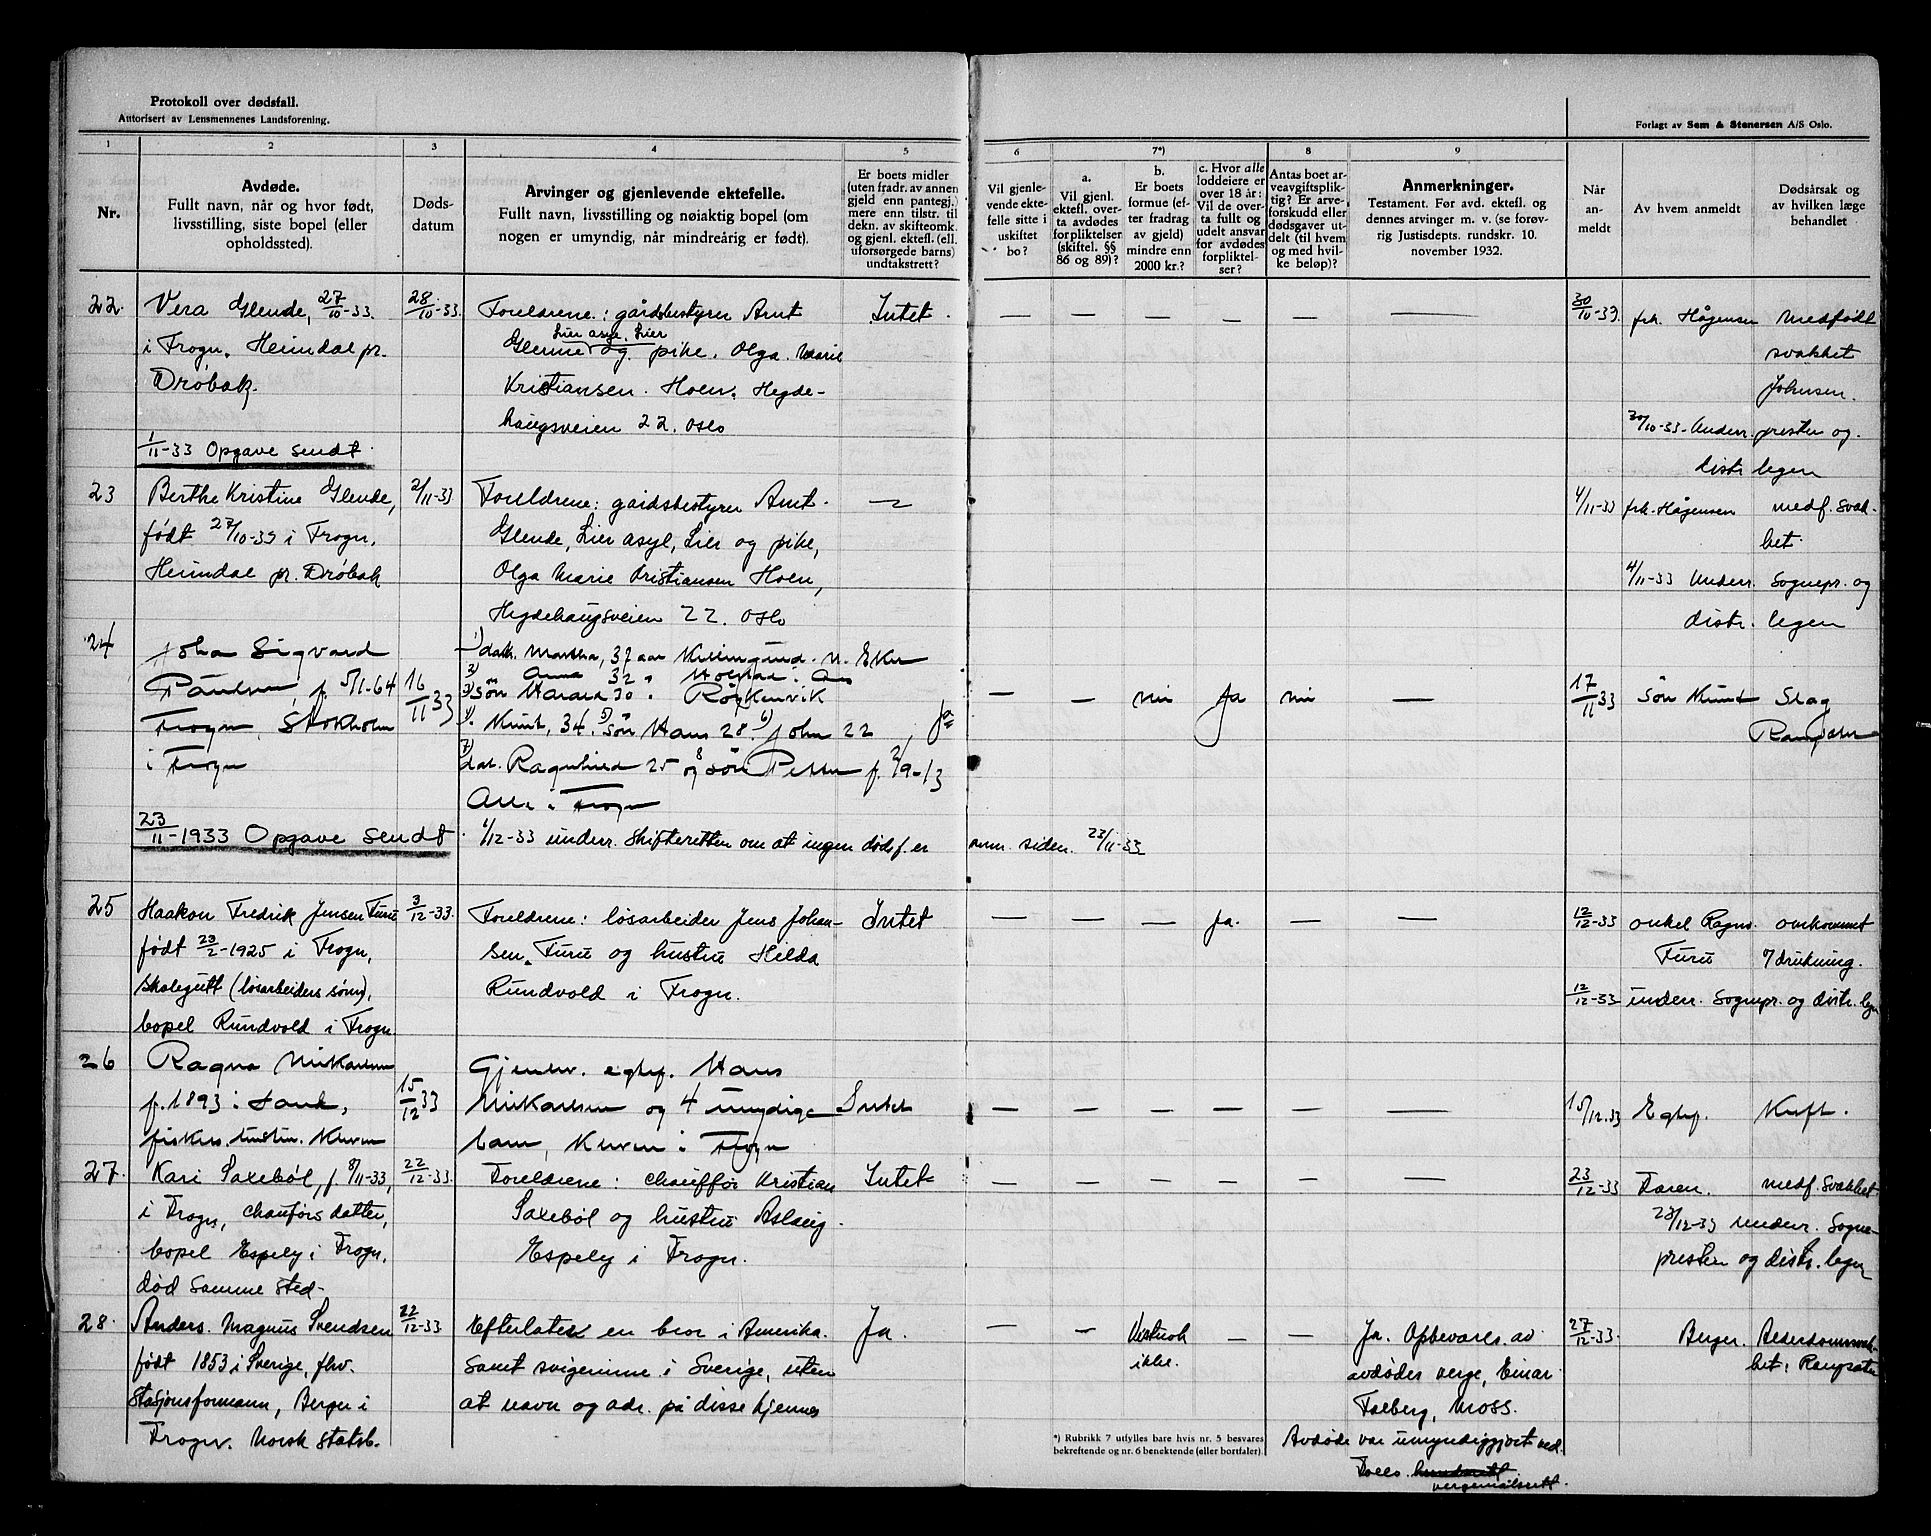 Protokoll over dødsfall.
Autorisert av Lensmennenes Landsforening.
Forlagt av Sem & Stenersen A/S Oslo.
1 2 3 4 5 6 7*) 8 9
Nr.
Avdøde.
Fullt navn, når og hvor født,
livsstilling, siste bopel (eller
opholdssted).
Døds-
datum
Arvinger og gjenlevende ektefelle.
Fullt navn, livsstilling og nøiaktig bopel (om
nogen er umyndig, når mindreårig er født).
Er boets midler
(uten fradr. av annen
gjeld enn pantegj.)
mere enn tilstr. til
dekn. av skifteomk.
og gjenl. ektefl. (ell.
uforsørgede barns)
undtakstrett?
Vil gjenle-
vende ekte-
felle sitte i
uskiftet
bo?
a.
Vil gjenl.
ektefl. over-
ta avdødes
forpliktelser
(skiftel. §§
86 og 89)?
b.
Er boets
formue (ef-
ter fradrag
av gjeld)
mindre enn
2000 kr.?
c. Hvor alle
loddeiere er
over 18 år:
Vil de over-
ta fullt og
udelt ansvar
for avdødes
forpliktel-
ser?
Antas boet ar-
veavgiftsplik-
tig? Er arve-
forskudd eller
dødsgaver ut-
delt (til hvem
og med hvil-
ke beløp)?
Anmerkninger.
Testament. Før avd. ektefl. og
dennes arvinger m. v. (se forøv-
rig Justisdepts. rundskr. 10.
november 1932.
Når
an-
meldt
Av hvem anmeldt
Dødsårsak og
av hvilken læge
behandlet
22. Vera Glende, 27/10-33. 28/10-33. Foreldrene: gårdsbestyrer Arnt Intet. — — — — — — 30/10-33. frk. Hågensen Medfødt
Lier asyl, Lier
i Frogn. Heimdal pr. og pike, Olga Marie svakhet
Drøbak. Kristiansen Hoen. Hegde- Johnsen.
haugsveien 22. Oslo 30/10-33. Underr. presten og
1/11-33 Opgave sendt. distr. legen
23 Berthe Kristine Glende, 2/11-33 Foreldrene: gårdsbestyrer Arnt — 4/11-33 frk. Hågensen medf. svak-
født 27/10-33 i Frogn, Glende, Lier asyl, Lier og pike, het.
Heimdal pr. Drøbak Olga Marie Kristiansen Hoen, 4/11-33 Underr. Sognepr. og
Hegdehaugsveien 22. Oslo distr. legen
24 Johan Sigvard 1) datt. Martha, 37 aar
Paulsen, f. 5/1-64 16/11 33 2) Anna 32 " 3) Søn Harald 30. Røykenvik — — nei Ja nei — 17/11 33 Søn Knut Slag
Frogn, Stokholm 4). Knut, 34. 5) Søn Hans 28. 6) John 22 Ja
i Frogn 7) dat. Ragnhild 25 og 8 søn Petter f. 2/9-13
Alle i Frogn
23/11-1933 Opgave sendt. 1/12-33 underr. Skifteretten om at ingen dødsf. er anm. siden 23/11-33
25 Haakon Fredrik Jensen Furu 3/12-33. Foreldrene: løsarbeider Jens Johan- Intet — — — Ja. — — 12/12-33 onkel Ragnv. omkommet
født 23/2-1925 i Frogn, sen Furu og hustru Hilda Furu v/ drukning.
skolegutt (løsarbeiders sønn), Rundvold i Frogn. 12/12-33 underr. Sognepr. og distr. legen
bopel Rundvold i Frogn
26 Ragna Mikaelsen Gjenlev. egtef. Hans
f. 1893 i 15/12 33 Mikaelsen og 4 umyndige Intet — — — — — — 15/12.33 Egtef. Kreft.
fiskers hustru. barn, i Frogn
27. Kari Saxebøl, f. 8/11-33, 22/12-33. Foreldrene: chauffør Kristian Intet — — — — — — 23/12-33 Faren. medf. svakhet
i Frogn, chauførs datter, Saxebøl og hustru Aslaug. 23/12-33 underr. Sogne-
bopel Espely i Frogn, Espely i Frogn. presten og distr. legen
død samme sted.
28. Anders Magnus Svendsen 22/12-33 Efterlater en bror i Amerika. Ja. — — Visstnok — — Ja. Opbevares av 27/12-33. Berger. Alderdomssvak-
født 1853 i Sverige, fhv. samt svigerinne i Sverige, uten ikke. avdødes verge, Einar het,
Stasjonsformann, Berger i at navn og adr. på disse kjennes Falberg, Moss.
Frogn. Norsk statsb. Avdøde var umyndiggjort ved
Follo vergemålsrett.
*) Rubrikk 7 utfylles bare hvis nr. 5 besvares
bekreftende og nr. 6 benektende (eller bortfaler).